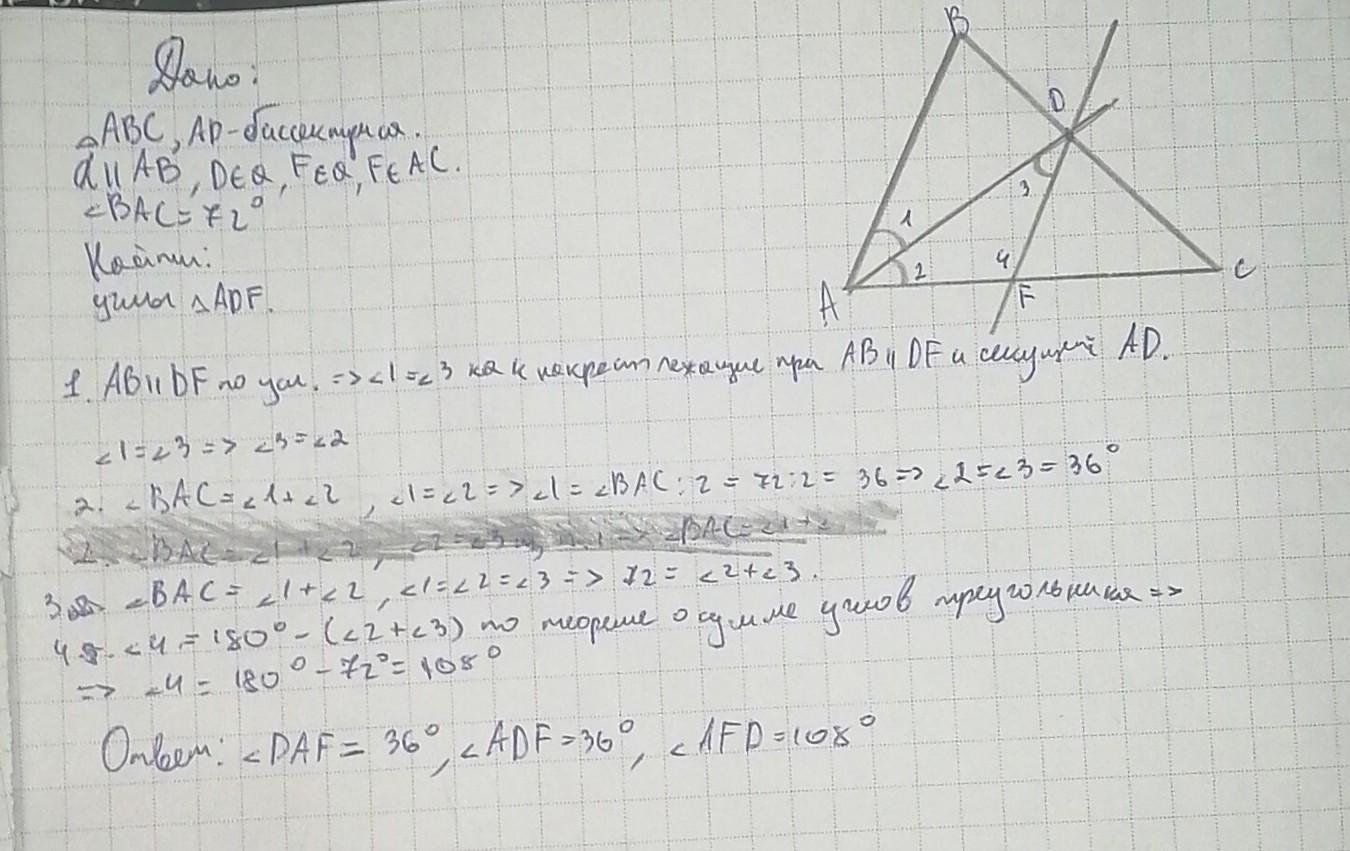 Дано:
△ABC, AD-биссектриса.
a || AB, D∈a, F∈a, F∈AC.
∠BAC=72°
Найти:
углы △ADF.
B
D
1
3
2
4
A
F
C
1. AB || DF по усл. => ∠1=∠3 как накрест лежащие при AB || DF и секущей AD.
∠1=∠3 => ∠3=∠2
2. ∠BAC=∠1+∠2 , ∠1=∠2 => ∠1=∠BAC:2 = 72:2 = 36 => ∠2=∠3=36°
2. ∠BAC=∠1+∠2, ∠2=∠3 => ∠BAC=∠1+∠
3. ∠BAC=∠1+∠2, ∠1=∠2=∠3 => 72=∠2+∠3.
4. ∠4=180°-(∠2+∠3) по теореме о сумме углов треугольника =>
=> ∠4 = 180°-72°=108°
Ответ: ∠DAF=36°, ∠ADF=36°, ∠AFD=108°